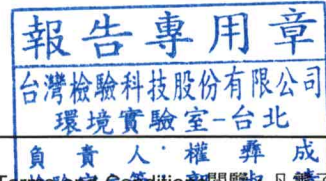 報告專用章
台灣檢驗科技股份有限公司
環境實驗室-台北
負責人：權彝成